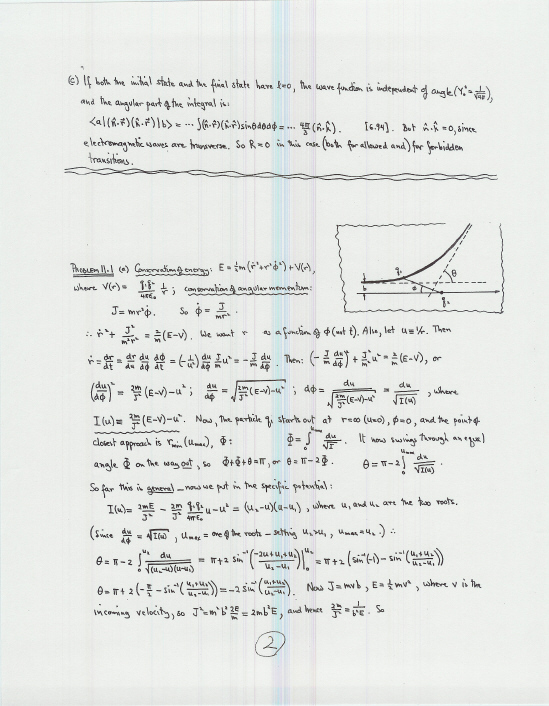 (c) If both the initial state and the final state have l=0, the wave function is independent of angle (Y₀⁰ = 1/√4π),
and the angular part of the integral is:
<a|(n̂·r⃗)(k̂·r⃗)|b> = ··· ∫(n̂·r⃗)(k̂·r⃗) sinθ dθ dφ = ··· 4π/3 (n̂·k̂). [6.94]. But n̂·k̂ = 0, since
electromagnetic waves are transverse. So R=0 in this case (both for allowed and) for forbidden
transitions.
b
q₁
φ
θ
q₂
PROBLEM 11.1 (a) Conservation of energy: E = ½m(ṙ²+r²φ̇²)+V(r),
where V(r) = q₁q₂/4πε₀ 1/r ; conservation of angular momentum:
J = mr²φ̇. So φ̇ = J/mr².
∴ ṙ² + J²/m²r² = 2/m (E-V). We want r as a function of φ (not t). Also, let u ≡ 1/r. Then
ṙ = dr/dt = dr/du du/dφ dφ/dt = (-1/u²) du/dφ J/m u² = -J/m du/dφ. Then: (-J/m du/dφ)² + J²/m² u² = 2/m (E-V), or
(du/dφ)² = 2m/J² (E-V) - u² ; du/dφ = √(2m/J² (E-V) - u²) ; dφ = du/√(2m/J² (E-V) - u²) = du/√I(u) , where
I(u) ≡ 2m/J² (E-V) - u². Now, the particle q₁ starts out at r=∞ (u=0), φ=0, and the point of
closest approach is r_min (u_max), Φ: Φ = ∫₀^u_max du/√I. It now swings through an equal
angle Φ on the way out, so Φ+Φ+θ=π, or θ = π-2Φ. θ = π-2 ∫₀^u_max du/√I(u).
So far this is general — now we put in the specific potential:
I(u) = 2mE/J² - 2m/J² q₁q₂/4πε₀ u - u² = (u₂-u)(u-u₁) , where u₁ and u₂ are the two roots.
(Since du/dφ = √I(u) , u_max = one of the roots — setting u₂>u₁ , u_max = u₂.) ∴
θ = π-2 ∫₀^u₂ du/√((u₂-u)(u-u₁)) = π+2 sin⁻¹((-2u+u₁+u₂)/(u₂-u₁))|₀^u₂ = π+2 (sin⁻¹(-1) - sin⁻¹((u₁+u₂)/(u₂-u₁)))
θ = π+2 (-π/2 - sin⁻¹((u₁+u₂)/(u₂-u₁))) = -2 sin⁻¹((u₁+u₂)/(u₂-u₁)). Now J = mvb , E = ½mv² , where v is the
incoming velocity, so J² = m²b² 2E/m = 2mb²E, and hence 2m/J² = 1/b²E. So
2